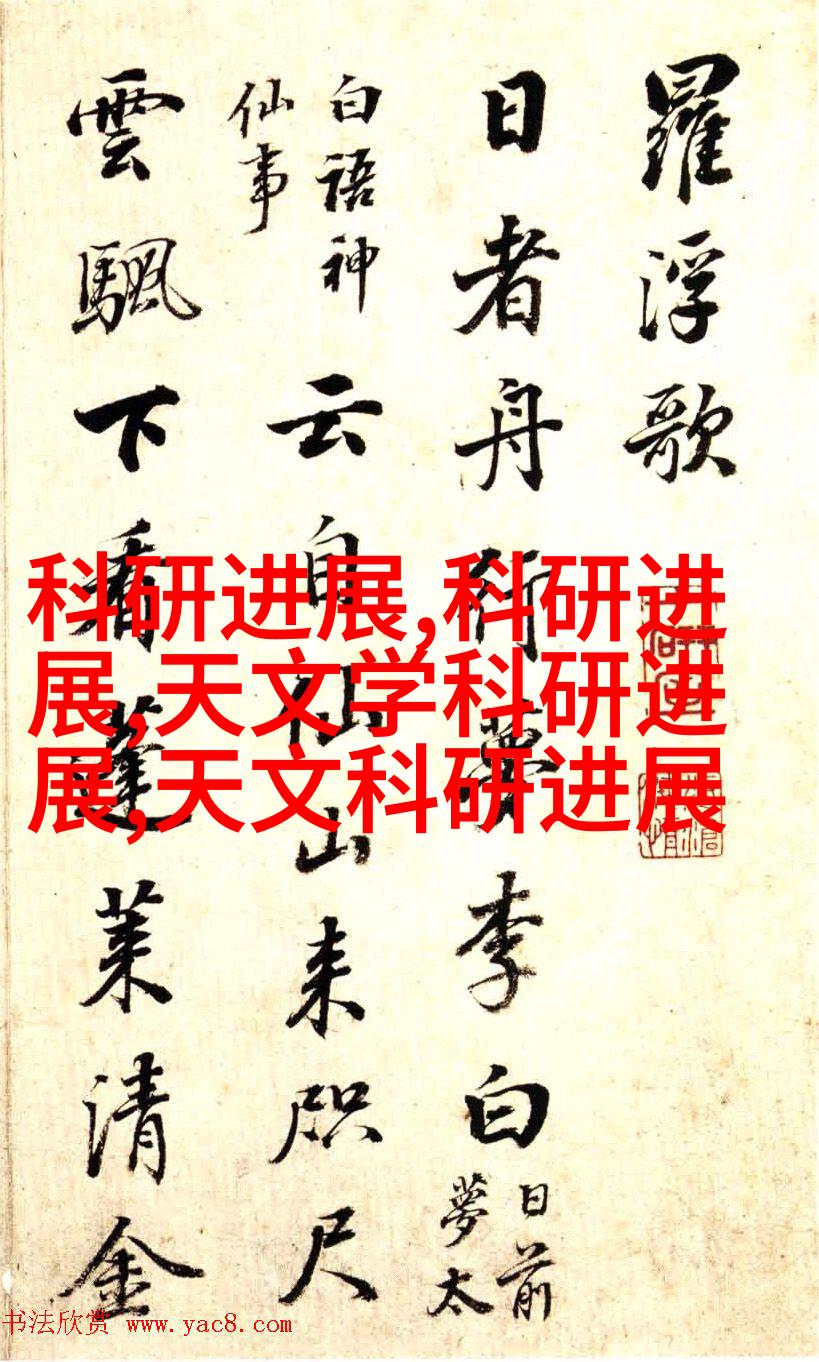 羅浮歌
日者舟行夢李白
日前
夢太
白語神
仙事
云自仙山来咫尺
雲颿下看蓬莱清金
科研进展,科研进
展,天文学科研进
展,天文科研进展
书法欣赏 www.yac8.com